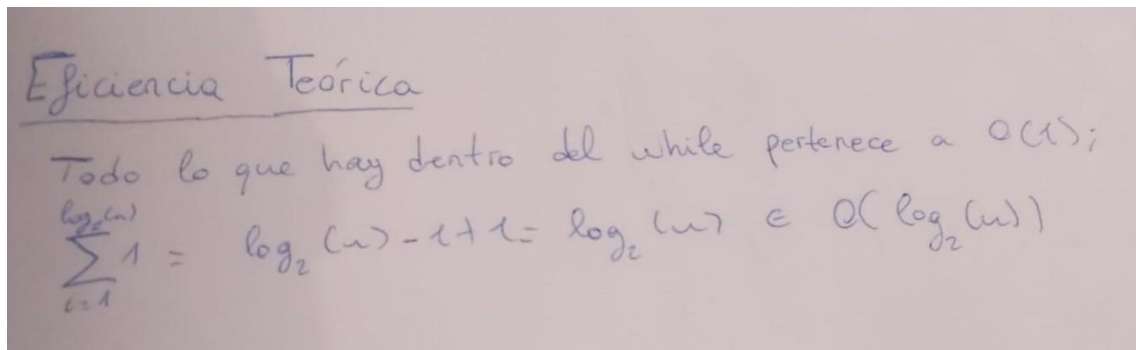 Eficiencia Teórica
Todo lo que hay dentro del while pertenece a O(1);
log₂(n)
∑ 1 = log₂(n) - 1 + 1 = log₂(n) ∈ O(log₂(n))
i=1